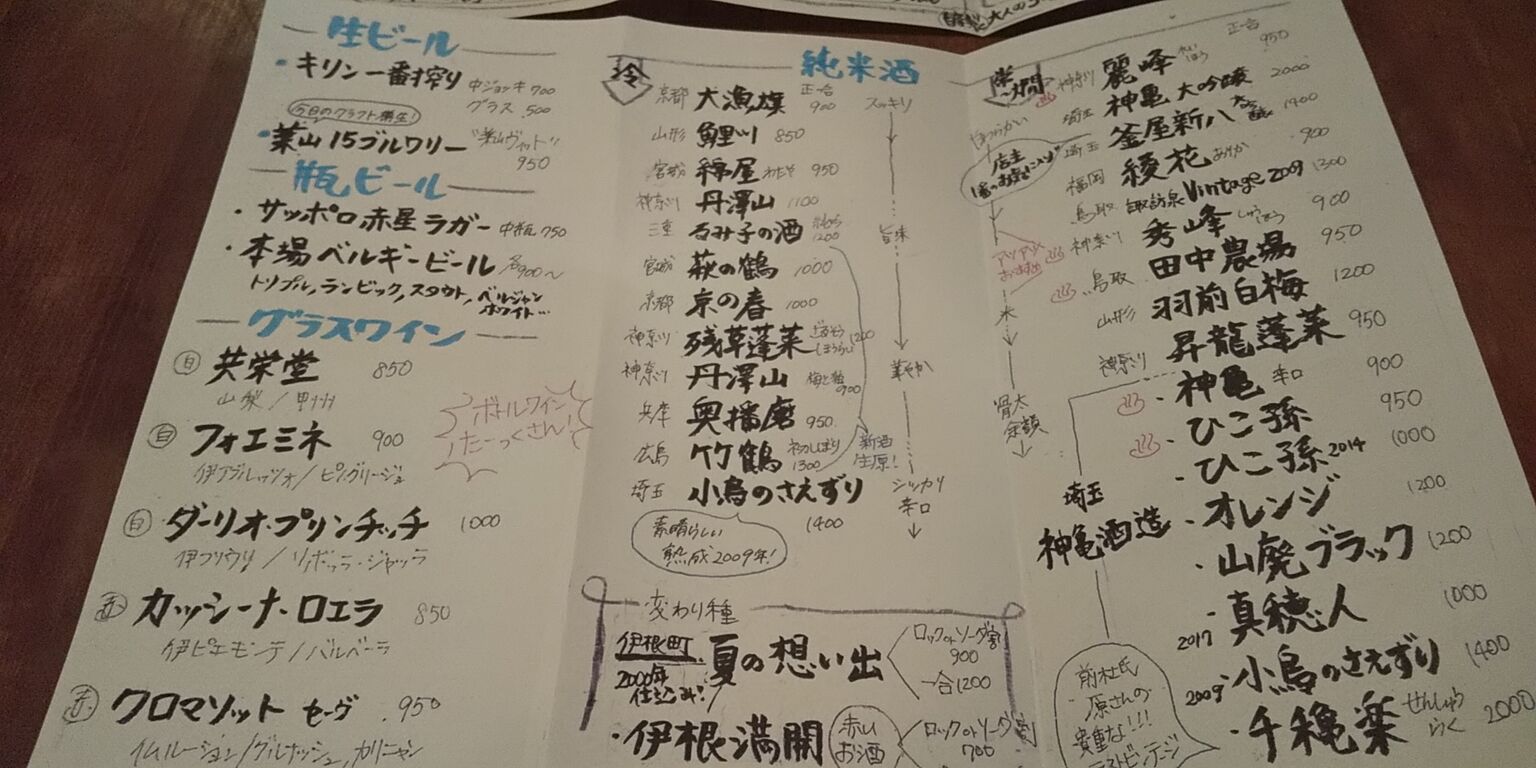 生ビール
・キリン一番搾り 中ジョッキ 700
グラス 500
今日のクラフト樽生!
・葉山15ブルワリー "葉山ヴァイツ" 950
瓶ビール
・サッポロ赤星ラガー 中瓶 750
・本場ベルギービール 各900〜
トリプル, ランビック, スタウト, ベルジャンホワイト…
グラスワイン
白 共栄堂 850
山梨/甲州
白 フォエミネ 900
伊アブルッツォ/ピノグリージョ
ボトルワインたーっくさん!
白 ダーリオ・プリンチッチ 1000
伊フリウリ/リボッラ・ジャッラ
赤 カッシーナ・ロエラ 850
伊ピエモンテ/バルベーラ
赤 クロマソット セーヴ 950
グルナッシュ, カリニャン
純米酒
冷
京都 大漁旗 正一合 900
スッキリ
山形 鯉川 850
宮城 綿屋 わたや 950
神奈川 丹澤山 1100
三重 るみ子の酒 1200
旨味
宮城 萩の鶴 1000
京都 京の春 1000
神奈川 残草蓬莱 ざるそうほうらい 1200
神奈川 丹澤山 900
華やか
兵庫 奥播磨 950
広島 竹鶴 初しぼり 1300
新酒生原!
埼玉 小鳥のさえずり 1400
シッカリ
辛口
素晴らしい
熟成2009年!
変わり種
伊根町 2000年仕込み! 夏の想い出 ロックorソーダ割 900
一合1200
・伊根満開 赤いお酒 ロックorソーダ割 700
常〜燗
正一合
神奈川 麗峰 れいほう 950
埼玉 神亀 大吟醸 2000
やわらかい
埼玉 釜屋新八 1400
福岡 綾花 あやか 900
鳥取 諏訪泉 Vintage 2009 1300
神奈川 秀峰 しゅうほう 900
アツアツおすすめ
鳥取 田中農場 950
米
山形 羽前白梅 1200
神奈川 昇龍蓬莱 950
骨太
余韻
埼玉
神亀酒造
・神亀 辛口 900
・ひこ孫 950
・ひこ孫 2014 1000
・オレンジ 1200
・山廃ブラック 1200
2017 ・真穂人 1000
2009 ・小鳥のさえずり 1400
・千穐楽 せんしゅうらく 2000
前杜氏
原さんの
貴重な!!!
ラストビンテージ